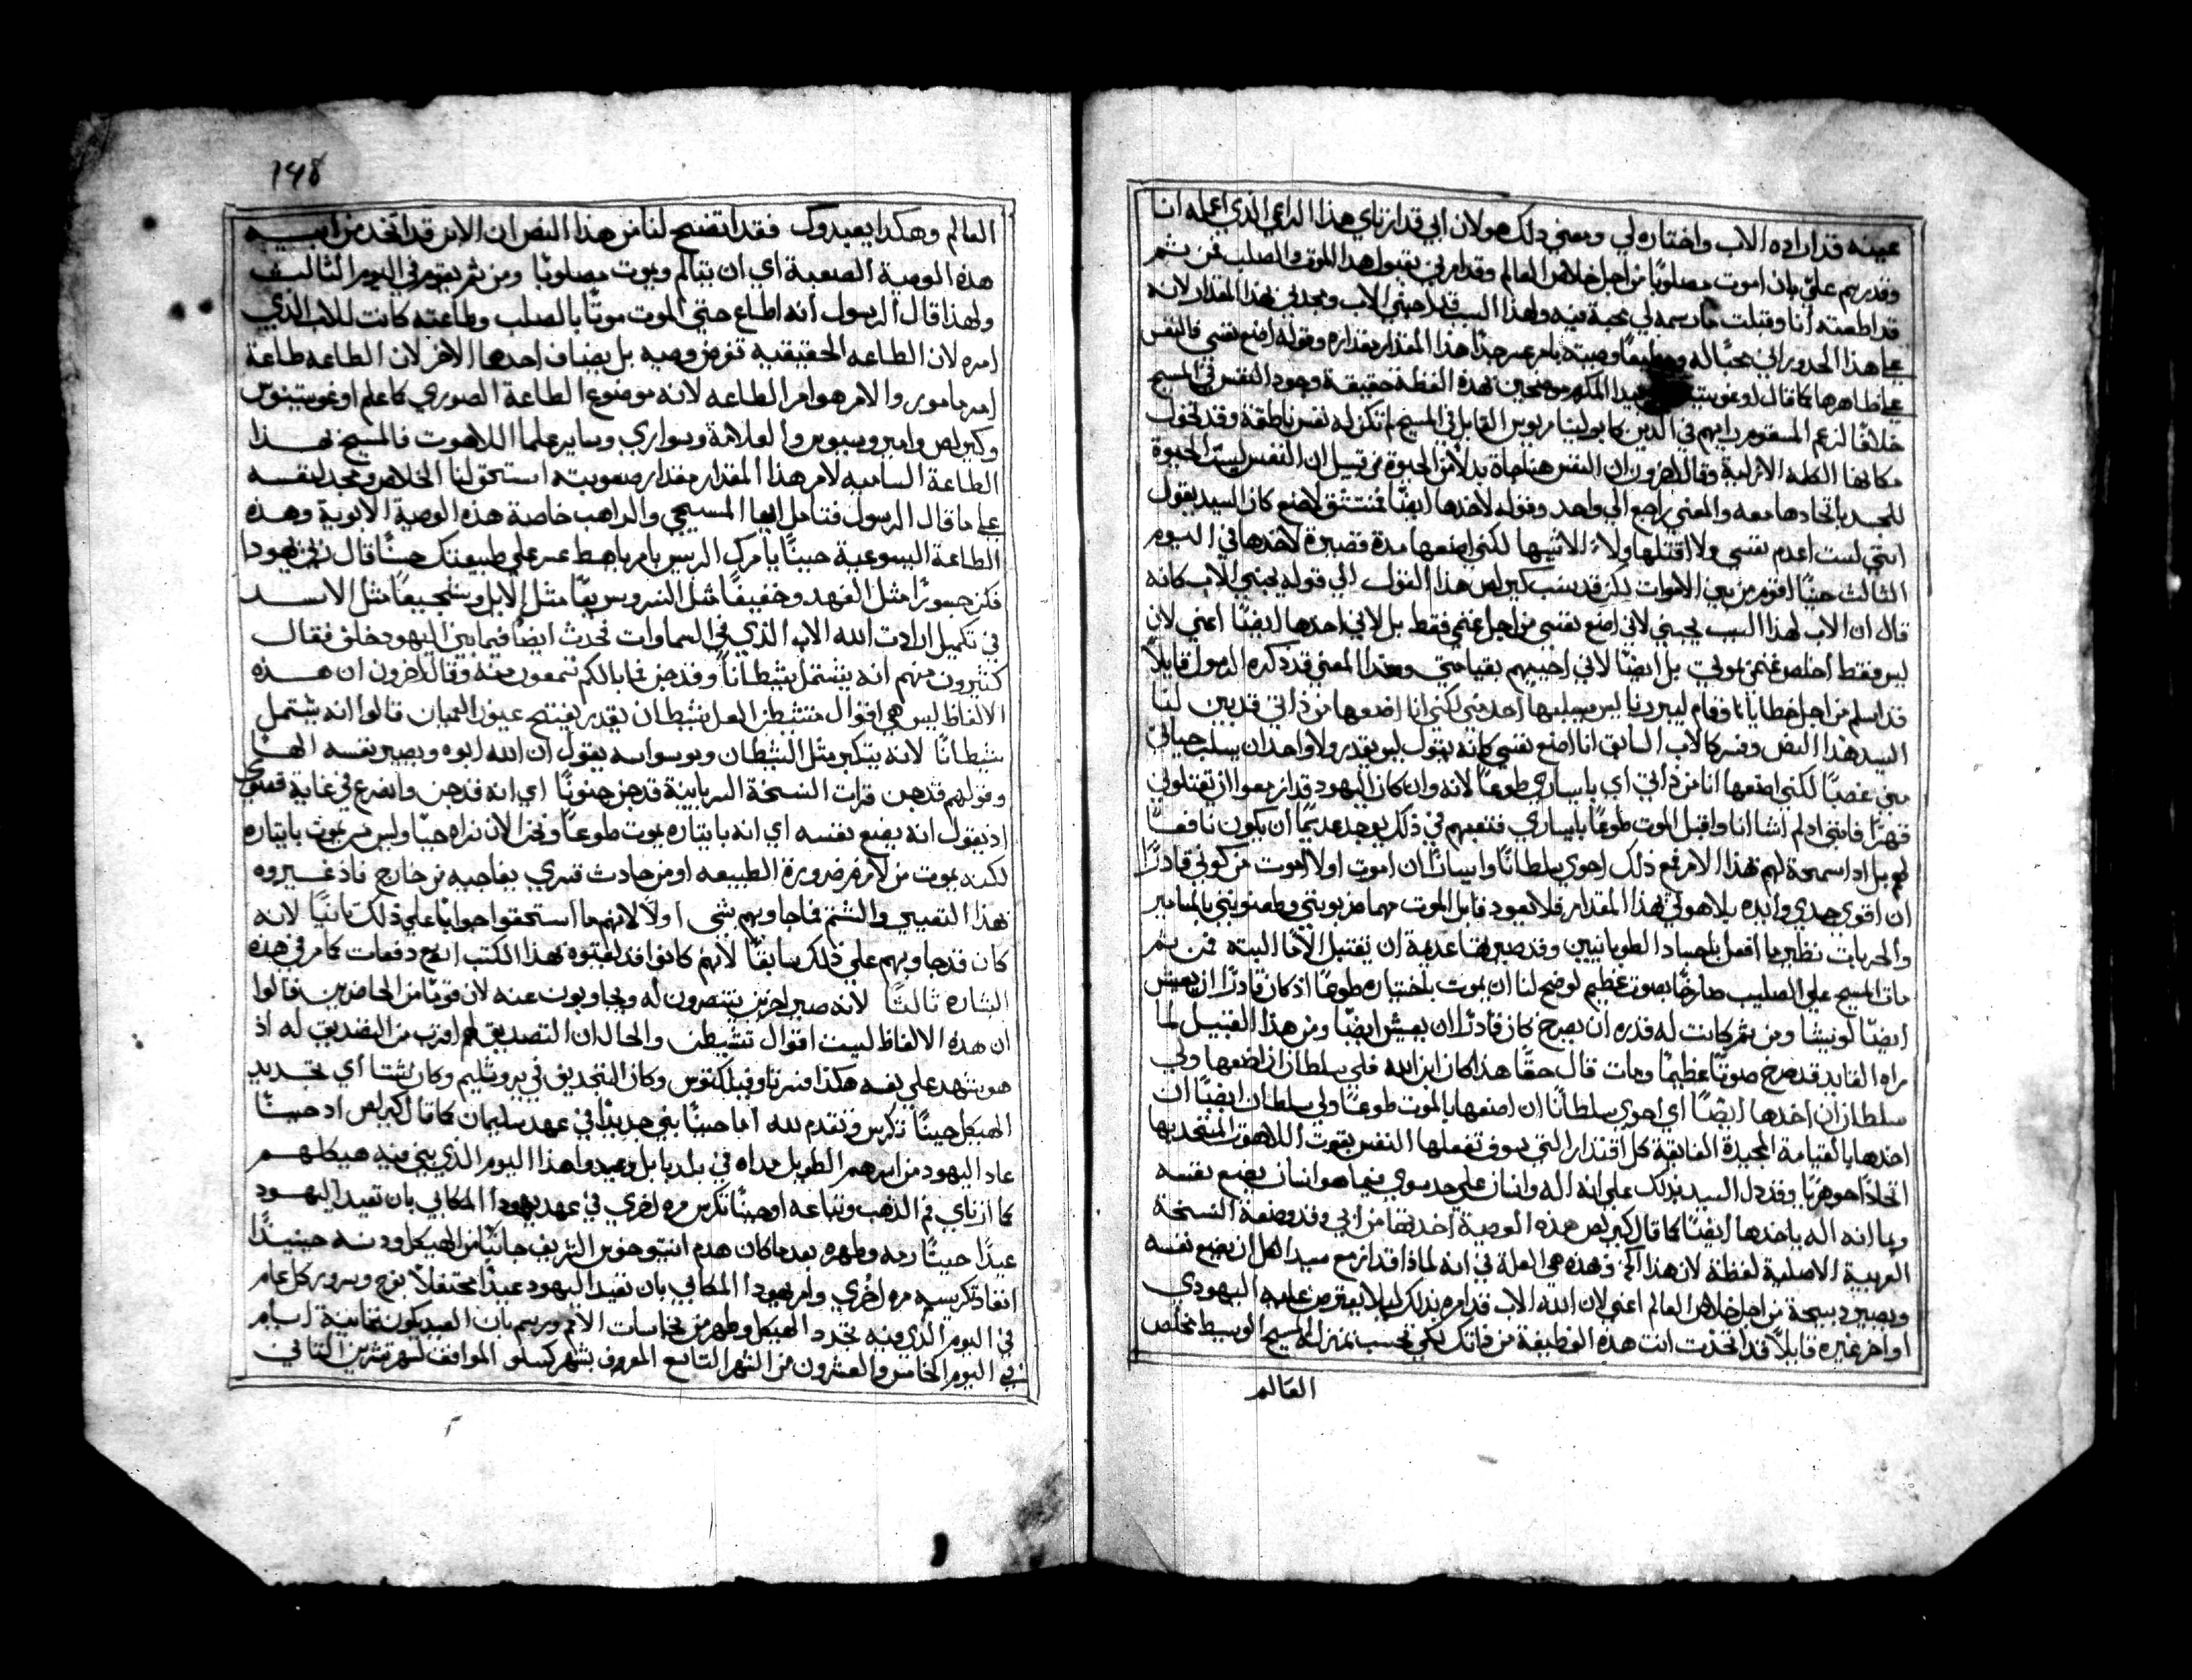 عينه قد اراده الاب واختاره لي ومعني ذلك هو لان ابي قد ارتاي هذا الراعي الذي اعمله انا
وقد رسم عليّ بان اموت مصلوبًا من اجل خلاص العالم وقد امرني بقبول هذا الموت والصلب فمن ثم
قد اطعته انا وقبلت ما رسمه لي محبة فيه ولهذا السبب قد احبني الاب ومجدني بهذا المقدار لانه
علي هذا الحد وراني محبًا له ومطيعًا وصيته بامر عسر جدًا هذا المقدار مقداره وقوله اضع نفسي فالنفس
علي ظاهرها كما قال اوغوسينوس المكرم موضحين بهذه اللفظة حقيقة وجود النفس في المسيح
خلافًا لزعم المسقوم رايهم في الدين كابوليناريوس القايل في المسيح لم تكن له نفس ناطقة وقد تخول
مكانها الكلمه الازلية وقال اخرون ان النفس هنا جاة بدلا من الحيوة من قبيل ان النفس لبست الحيوة
للجسد باتحادها معه والمعني راجع الي واحد وقوله لاخذها ايضًا فتنتسق لاضع كان السيد يقول
انني لست اعدم نفسي ولا اقتلها ولا الاشيها لكني اضعها مدة قصيرة لاخذها في اليوم
الثالث حينما اقوم من بين الاموات لكن قد ينسب كيرلص هذا القول الي قوله يحبني الاب كانه
قال ان الاب لهذا السبب يحبني لاني اضع نفسي من اجل غنمي فقط بل لاني اخذها ايضًا اعني لان
ليس فقط اخلص غنمي بموتي بل ايضًا لاني احييهم بقيامتي وهذا المعني قد ذكره الرسول قايلًا
قد اسلم من اجل خطايانا وقام ليبررنا ليس يسلبها احد مني لكني انا اضعها من ذاتي قد يبين لنا
السيد هذا النص وفسر كالاب السابق انا اضع نفسي كانه يقول ليس يقدر ولا واحد ان يسلب حياتي
مني غصبًا لكني اضعها انا من ذاتي اي بايساري طوعًا لانه وان كان اليهود قد ازمعوا ان يقتلوني
قهرًا فانني اد لم اشا انا واقبل الموت طوعًا بايساري فتعبهم في ذلك يوجد عديمًا ان يكون نافعًا
لهم بل اد اسمحة لهم بهذا الامر فمع ذلك احوي سلطانًا وايسارًا ان اموت او لا اموت من كوني قادرًا
ان اقوي جسدي وايده بلاهوتي هذا المقدار فلا يعود قابل الموت مهما ضربوني وطعنوني بالمسامير
والحربات نظير ما افعل باجساد الطوبانيين وقد صيرتها عديمة ان تقتبل الآما البته فمن ثم
مات المسيح علي الصليب صارخًا بصوت عظيم لوضح لنا ان يموت باختياره طوعًا اذ كان قادرًا ان يعيش
ايضًا لو يشا ومن ثم كانت له قدره ان يصرخ كان قادرًا ان يعيش ايضًا ومن هذا القبيل لما
راه القايد قد صرخ صوتًا عظيمًا ومات قال حقًا هذا كان ابن الله فلي سلطان ان اضعها ولي
سلطان ان اخدها ايضًا اي احوي سلطانًا ان اضعها بالموت طوعًا ولي سلطان ايضًا ان
اخدها بالقيامة المجيدة الفايقة كل اقتدار التي سوف تفعلها النفس بقوت اللاهوت المتحد بها
اتحادًا جوهريًا وقد دل السيد بذلك علي انه اله وانسان علي حد سوي فبما هو انسان يضع نفسه
وبما انه اله ياخدها ايضًا كما قال كيرلص هذه الوصية اخدتها من ابي وقد وضعة النسخة
العربية الاصلية لفظة لان هذا الخ وهذه هي العلة في انه لماذا قد ازمع سيد الكل ان يضع نفسه
ويصير دبيحة من اجل خلاص العالم اعني لان الله الاب قد امره بذلك ليلا يعترض عليه اليهودي
او اخر غيره قايلًا قد اتخذت انت هذه الوظيفة من ذاتك لكي تحسب بمنزلة المسيح الوسيط مخلص
العالم
148
العالم وهكدا يعبدوك فقد اتضح لنا من هذا النص ان الابن قد اتخذ من ابيه
هده الوصية الصعبة اي ان يتالم ويموت مصلوبًا ومن ثم يقوم في اليوم الثالث
ولهذا قال الرسول انه اطاع حتي الموت موتًا بالصلب وطاعته كانت للاب الذي
امره لان الطاعه الحقيقيه تفرض وصيه بل يضاف احدها الاخر لان الطاعه طاعة
امر مامور والامر هو امر الطاعه لانه موضوع الطاعة الصوري كما علم اوغوسينوس
وكيرلص وامبروسيوس والعلامة وسواري وساير علما اللاهوت فالمسيح بهذا
الطاعة الساميه لامر هذا المقدار مقدار صعوبته استحق لنا الخلاص ومجد لنفسه
علي ما قال الرسول فتامل ايها المسيحي والراهب خاصة هذه الوصية الابوية وهذه
الطاعة اليسوعية حينما يامرك الريس بامر باهظ عسر علي طبيعتك حسنًا قال ربي يهودا
فكن جسورًا مثل الفهد وخفيفًا مثل النسر وسريعًا مثل الايل وشجيعًا مثل الاسد
في تكميل ارادت الله الاب الذي في السماوات فحدث ايضًا فيما بين اليهود خلف فقال
كثيرون منهم انه يشتمل شيطانًا وقد جن فما بالكم تسمعون منه وقال اخرون ان هذه
الالفاظ ليس هي اقوال متشيطن العل شيطان يقدر يفتح عيون العميان قالوا انه يشتمل
شيطانًا لانه يتكبر مثل الشيطان وبوسواسه يقول ان الله ابوه ويصير نفسه الهًا
وقولهم قد جن قرات النسخة السريانية قد جن جنونًا اي انه قد جن وانصرع في غاية قصوي
اد يقول انه يضع نفسه اي انه بايتاره يموت طوعًا ونحن الان نراه حيًا وليس من يموت بايتاره
لكنه يموت من لازم ضرورة الطبيعه او من حادث قسري يفاجيه من خارج فاذ غيروه
بهذا التعيير والشتم فما جاوبهم بشي اولًا لانهم ما استحقوا جوابًا علي ذلك ثانيًا لانه
كان قد جاوبهم علي ذلك سابقًا لانهم كانوا قد لقبوه بهذا الكتب اربع دفعات كما مر في هذه
البشاره ثالثًا لانه صير اخرين ينتصرون له ويجاوبون عنه لان قومًا من الحاضرين قالوا
ان هده الالفاظ ليست اقوال تشيطن والحال ان التصديق لهم اقرب من التصديق له اذ
هو يشهد علي نفسه هكذا فسر تاوفيلكتوس وكان التجديق في يروشليم وكان شتا اي تجديد
الهيكل حينًا تكرس وتقدم لله اما حينًا بني جديدًا في عهد سليمان كما قال كيرلص او حينمًا
عاد اليهود من اسرهم الطويل مداه في بلد بابل وعيدوا هذا اليوم الذي بني فيه هيكلهم
كما ارتاي فم الذهب وتباعه او حينما تكرس مره اخري في عهد يهودا المكابي بان تعيد اليهود
عيدًا حينما رمه وطهره بعد ما كان هدم انتيوخوس الشريف جانبًا من الهيكل ودنسه حينيدًا
انفاذ تكريسه مره اخري وامر يهودا المكابي بان تعيد اليهود عيدًا محتفلًا بفرح وسرور كل عام
في اليوم الذي فيه تجدد الهيكل وطهر من نجاسات الامم ورسم بان العيد يكون ثمانية ايام
في اليوم الخامس والعشرون من الشهر التاسع المعروف بشهر كسلو الموافق لشهر تشرين الثاني